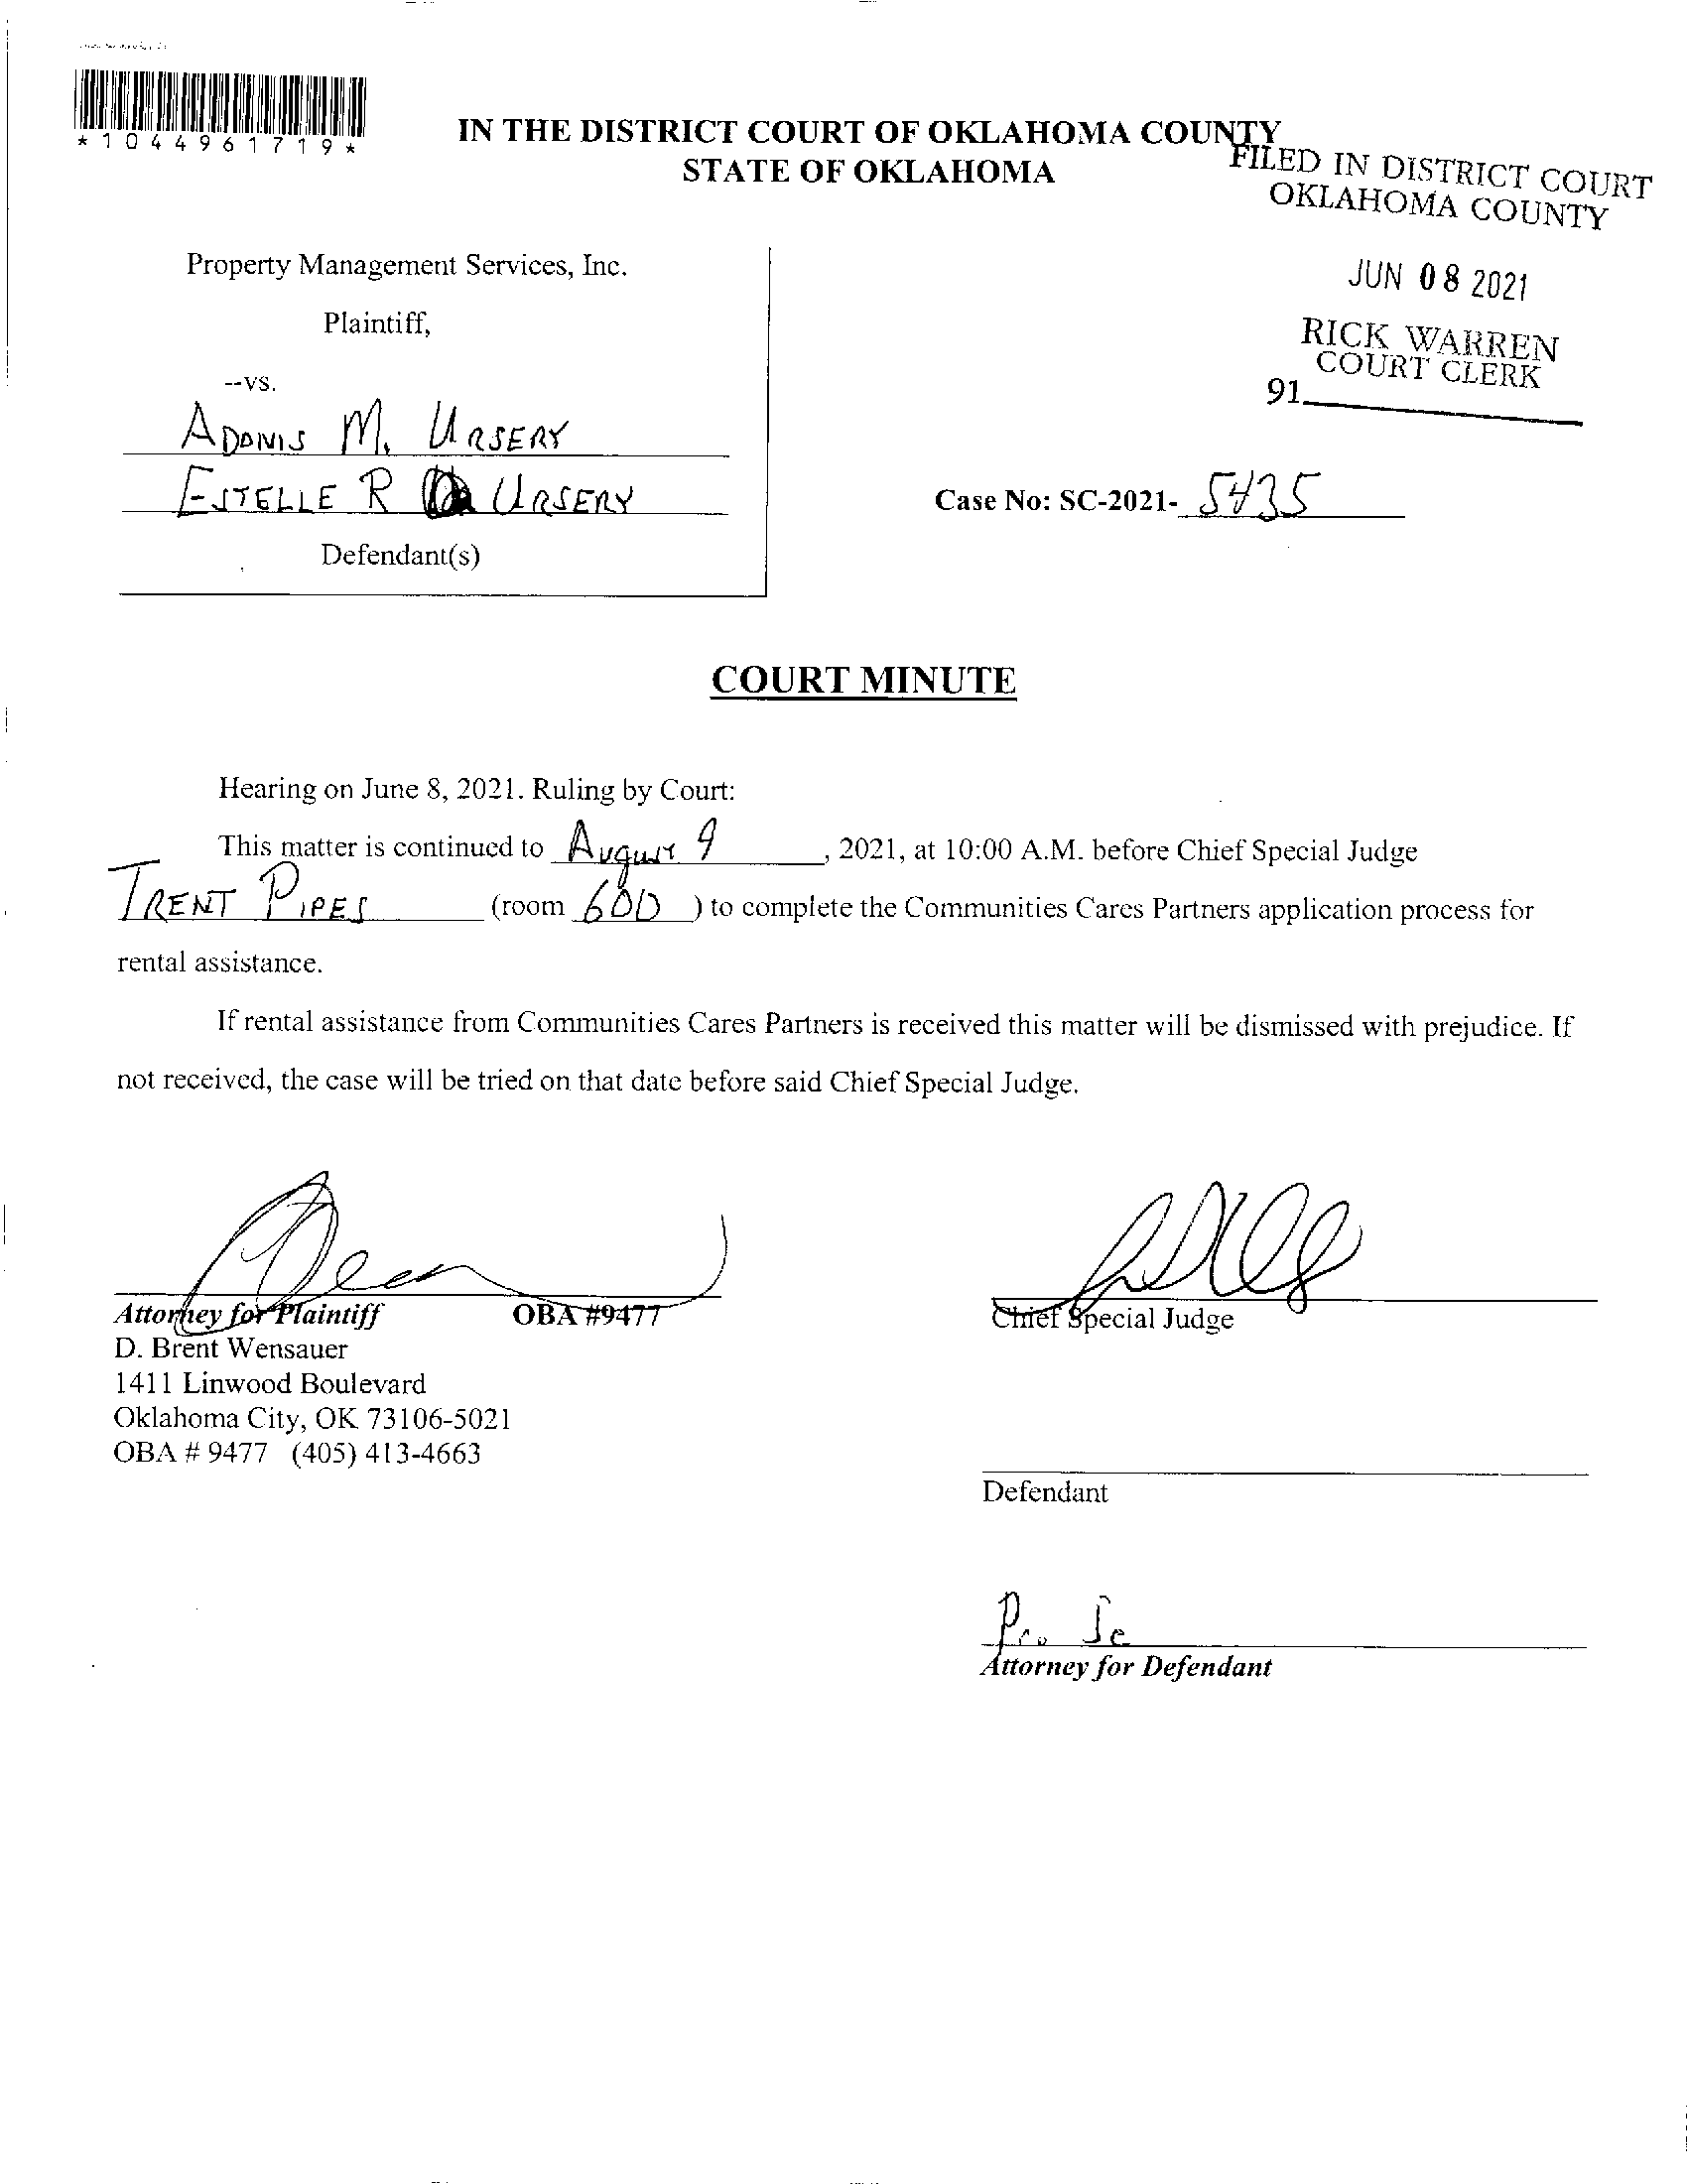 *1044961719*
IN THE DISTRICT COURT OF OKLAHOMA COUNTY
STATE OF OKLAHOMA
FILED IN DISTRICT COURT
OKLAHOMA COUNTY
JUN 08 2021
RICK WARREN
COURT CLERK
91
Property Management Services, Inc.
Plaintiff,
--vs.
ADONIS M. URSERY
ESTELLE R URSERY
Defendant(s)
Case No: SC-2021- 5435
COURT MINUTE
Hearing on June 8, 2021. Ruling by Court:
This matter is continued to August 9, 2021, at 10:00 A.M. before Chief Special Judge
TRENT PIPES (room 600) to complete the Communities Cares Partners application process for
rental assistance.
If rental assistance from Communities Cares Partners is received this matter will be dismissed with prejudice. If
not received, the case will be tried on that date before said Chief Special Judge.
Attorney for Plaintiff OBA #9477
D. Brent Wensauer
1411 Linwood Boulevard
Oklahoma City, OK 73106-5021
OBA # 9477 (405) 413-4663
Chief Special Judge
Defendant
Pro Se
Attorney for Defendant